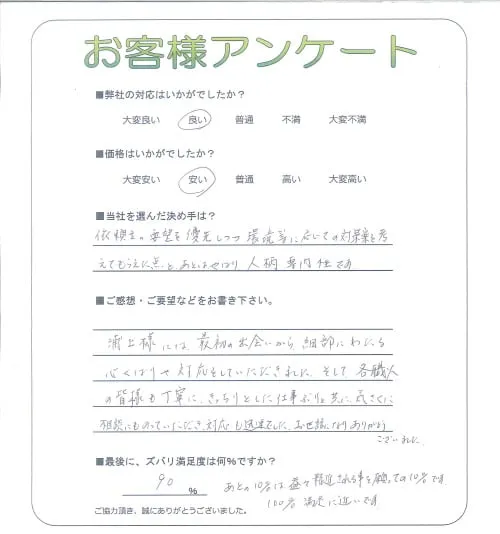 お客様アンケート
■弊社の対応はいかがでしたか?
大変良い 良い 普通 不満 大変不満
■価格はいかがでしたか?
大変安い 安い 普通 高い 大変高い
■当社を選んだ決め手は?
依頼主の要望を優先しつつ環境等に応じての対策案を考
えてもらえた点と、あとはやはり人柄、専門性です
■ご感想・ご要望などをお書き下さい。
浦上様には、最初の出会いから細部にわたる
心くばりや対応をしていただきました。そして、各職人
の皆様も丁寧に、きっちりとした仕事ぶりと共に、気さくに
相談にものっていただき対応も迅速でした。お世話になりありがとう
ございました
■最後に、ズバリ満足度は何%ですか?
90 %
あとの10%は益々精進される事を願っての10%です
100% 満足に近いです
ご協力頂き、誠にありがとうございました。